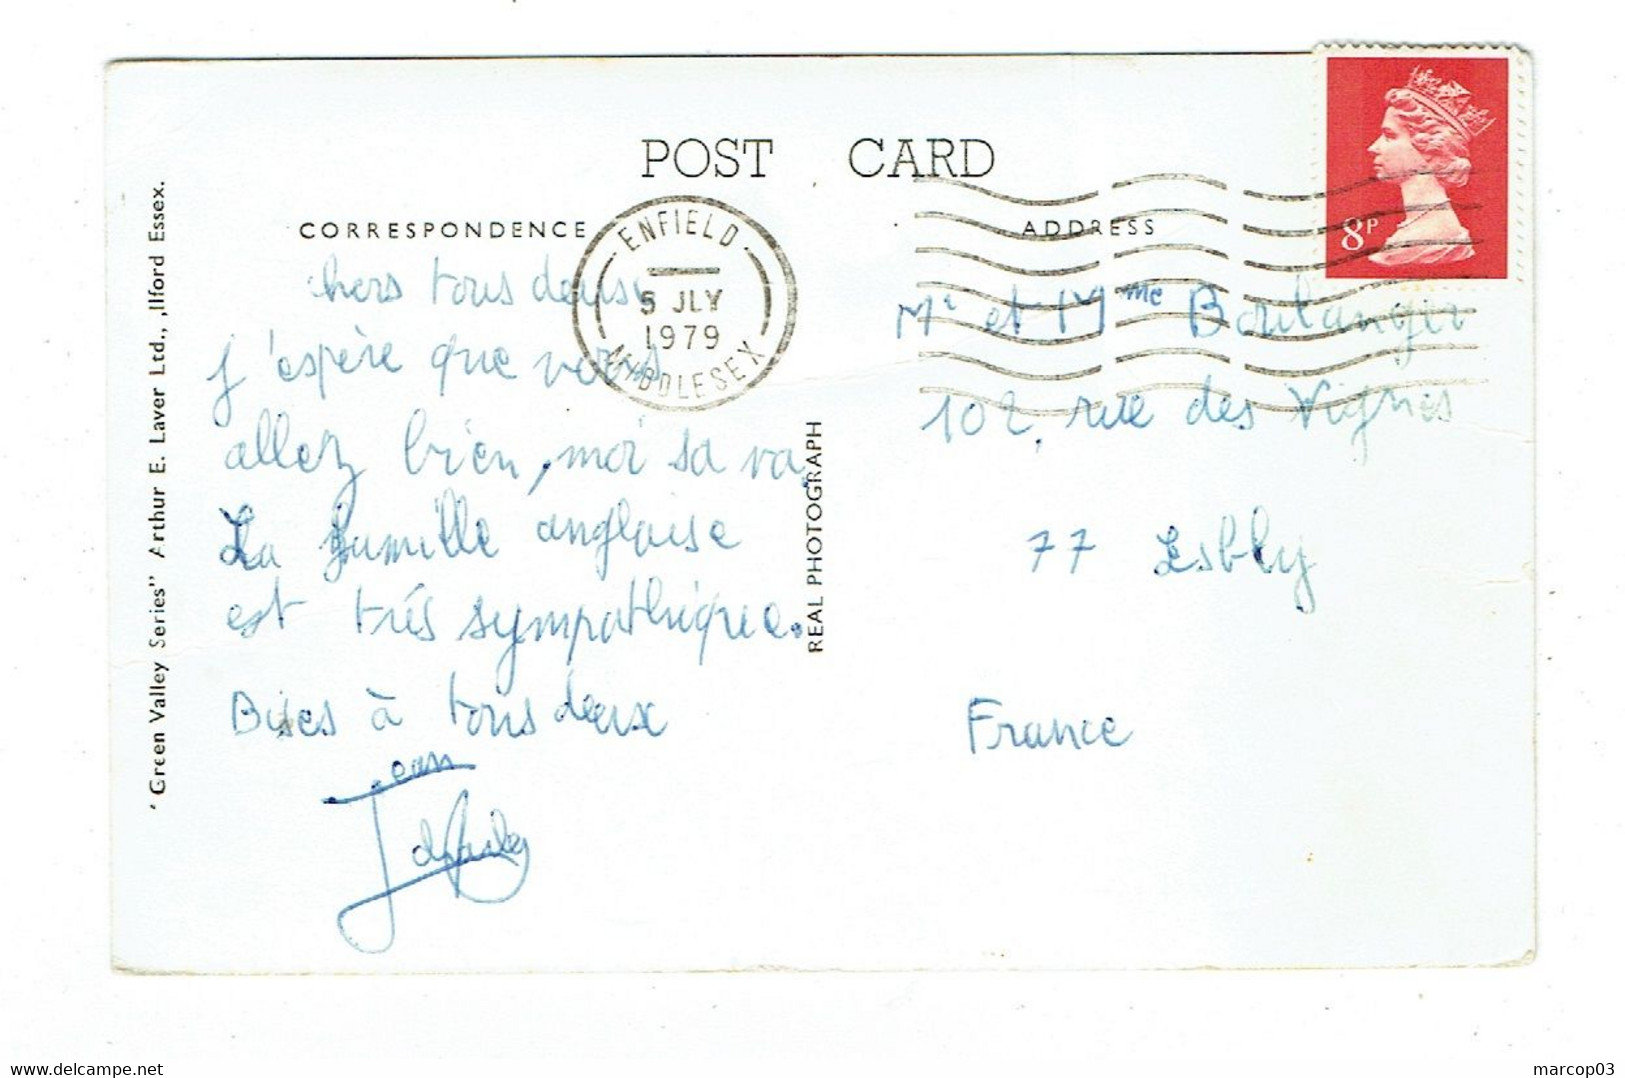 POST CARD
CORRESPONDENCE
ADDRESS
ENFIELD
5 JLY
1979
MIDDLESEX
8P
chers tous deux
j'espère que vous
allez bien, moi sa va.
La famille anglaise
est trés sympathique.
Bises à tous deux
Jean
Mr et Mme Boulanger
102, rue des Vignes
77 Esbly
France
REAL PHOTOGRAPH
"Green Valley Series" Arthur E. Laver Ltd., Ilford Essex.
delcampe.net
marcop03